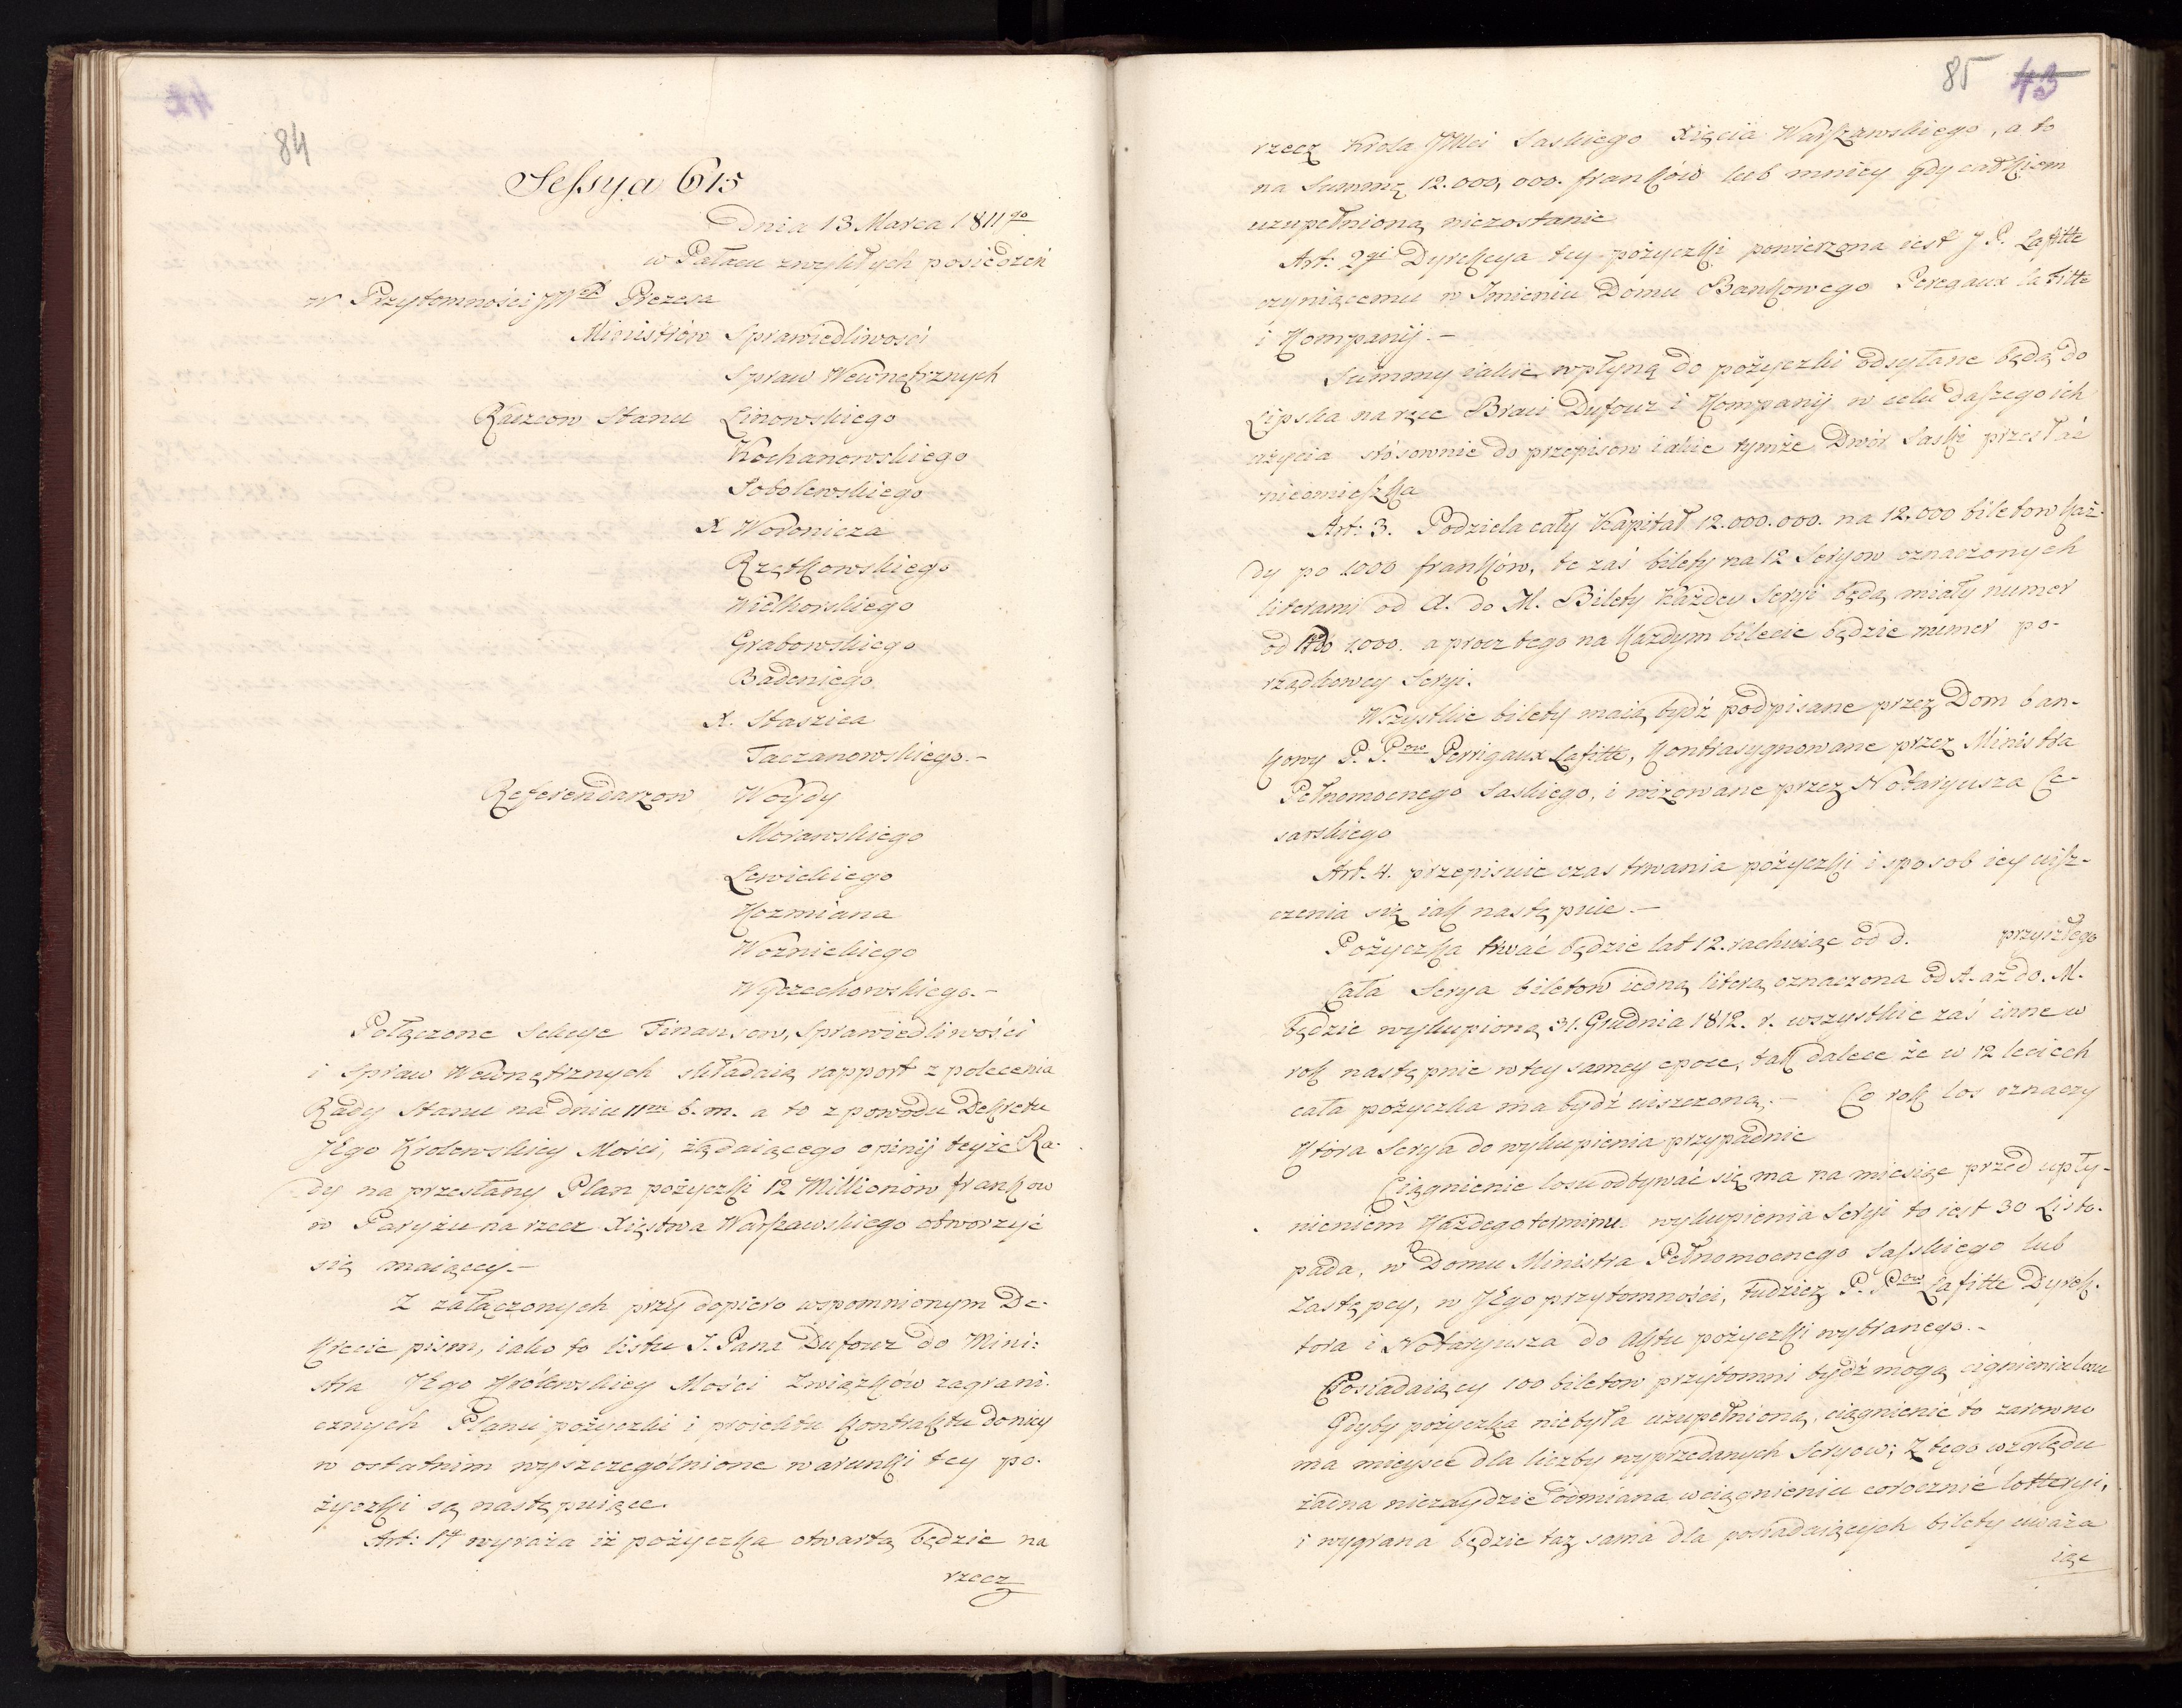 84
Sessya 615
Dnia 13 Marca 1811go
w Pałacu zwykłych posiedzeń
W Przytomności JWP. Prezesa
Ministrów Sprawiedliwości
Spraw Wewnętrznych
Radzcow Stanu Linowskiego
Kochanowskiego
Sobolewskiego
X Woronicza
Rzętkowskiego
Wielhorskiego
Grabowskiego
Badeniego
X. Staszica
Taczanowskiego.-
Referendarzow Woydy
Morawskiego
Lewickiego
Kozmiana
Woznickiego
Wyczechowskiego.-
Połączone Sekcye Finansow, Sprawiedliwości
i Spraw Wewnętrznych składaią rapport z polecenia
Rady Stanu na dniu 11m b. m. a to z powodu Dekretu
JEgo Krolewskiey Mości, żądaiącego opinij teyże Ra-
dy na przesłany Plan pożyczki 12 Millionów frankow
w Paryżu na rzecz Xięstwa Warszawskiego otworzyć
się maiącey.-
Z załączonych przy dopiero wspomnionym De-
krecie pism, iako to listu J. Pana Dufour do Mini:
stra JEgo Królewskiey Mości Związków zagrani-
cznych Planu pożyczki i proiektu kontraktu do niey
w ostatnim wyszczególnione warunki tey po-
życzki są następuiące.
Art: 1t wyraża iż pożyczka otwartą będzie na
rzecz
85 43
rzecz Krola JMci Saskiego Xięcia Warszawskiego, a to
na Summę 12.000,000. franków lub mniey gdy całkiem
uzupełnioną niezostanie
Art: 2gi Dyrekcya tey pożyczki powierzona iest J P. Lafitte
czyniącemu w Imieniu Domu Bankowego Peregaux la Fitte
i Kompanij.-
Summy iakie wpłyną do pożyczki odsyłane będą do
Lipska na ręce Braci Dufour i Kompanij w celu dalszego ich
użycia stósownie do przepisow iakie tymże Dwór Saski przesłać
nieomieszka
Art: 3. Podziela cały Kapitał 12.000.000. na 12,000 biletow każ-
dy po 1000 franków, te zaś bilety na 12 Seryow oznaczonych
literami od A. do M. Bilety każdey Seryi będą miały numer
od 1 do 1000. a procz tego na każdym bilecie będzie numer po-
rządkowey Seryi.
Wszystkie bilety maią bydź podpisane przez Dom ban-
kowy P. Pow Perrigaux Lafitte, kontrasygnowane przez Ministra
Pełnomocnego Saskiego, i wizowane przez Notaryusza Ce-
sarskiego
Art. 4. przepisuie czas trwania pożyczki i sposob iey uisz-
czenia się iak następuie.-
Pożyczka trwać będzie lat 12. rachuiąc od d. przyszłego
Cała Serya biletow iedną literą oznaczona od A. aż do. M.
będzie wykupioną 31. Grudnia 1812. r. wszystkie zaś inne w
rok następnie w tey samey epoce, tak dalece że w 12 leciech
cała pożyczka ma bydź uiszczoną,- Co rok los oznaczy
Która Serya do wykupienia przypadnie
Ciągnienie losu odbywać się ma na miesiąc przed upły-
nieniem każdego terminu wykupienia Seryi to iest 30 Listo-
pada, w Domu Ministra Pełnomocnego Saskiego lub
Zastępcy, w JEgo przytomności, tudzież P. Pow Lafitte Dyrek-
tora i Notaryusza do Aktu pożyczki wybranego.-
Posiadaiący 100 biletow przytomni bydź mogą cignieniu losu
Gdyby pożyczka niebyła uzupełnioną, ciągnienie to zarowno
ma mieysce dla liczby wyprzedanych Seryow; Z tego względu
żadna niezaydzie odmiana w ciągnieniu corocznie lotteryi,
i wygrana będzie taz sama dla posiadaiących bilety uważa
iąc